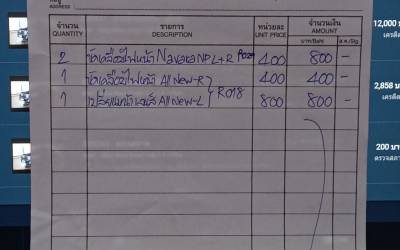 ADDRESS
จำนวน รายการ หน่วยละ จำนวนเงิน
QUANTITY DESCRIPTION UNIT PRICE AMOUNT
บาท/Baht ส.ต./Stg.
2 ขัดเคลือบไฟหน้า Navara NP L+R 400 800 -
1 ขัดเคลือบไฟหน้า All New-R 400 400 -
1 เปลี่ยนหน้าเลนส์ All New-L R018 800 800 -
12,000
เครดิต
2,858 บาท
เครดิต
200 บา
ตรวจสภา